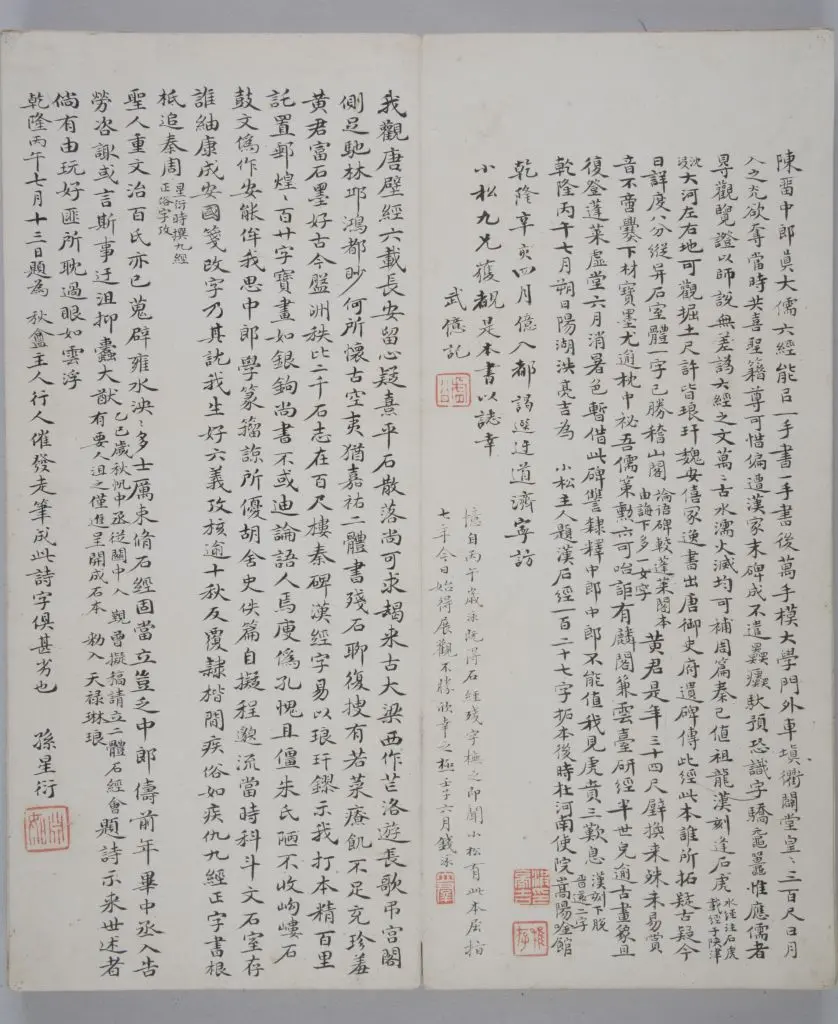 陳留中郎真大儒六經能呂一手書一手書後萬手模大學門外車填衢開堂皇〻三百尺日月
入之光欲奪當時共喜聖籍尊可惜偏遭漢家末碑成不遣蠹癭欹預恐識字驕黿鼉惟應儒者
尋觀覽證以師說無差譌六經之文萬〻古水濡火滅均可補周篇秦已值祖龍漢刻逢石虎
水經注石虎載經于陝津
沈沒
大河左右地可觀掘土尺許皆琅玕魏安僖冢逸書出唐御史府遺碑傳此經此本誰所拓疑古疑今
日詳度八分縱異石室體一字已勝稽山閣
論語碑較蓬萊閣本由誨下多一女字
黃君是年三十四尺璧換來殊未易賞
音不啻爨下材寶墨尤逾枕中祕吾儒策勳亦可咍詎有麟閣兼雲臺研經半世兒逾古畫象且
復登蓬萊虛堂六月消暑色暫借此碑讐隸釋中郎中郎不能值我見虎賁三歎息
漢刻下脫晉還二字
乾隆丙午七月朔日陽湖洪亮吉為 小松主人題漢石經一百二十七字拓本後時在河南使院嵩陽唫館
乾隆辛亥四月億入都謁選迂道濟寧訪
小松九兄獲觀是本書以誌幸
武億記
憶自丙午歲泳既得石經殘字橅之即聞小松有此本屈指
七年今日始得展觀不勝欣幸之極壬子六月錢泳
我觀唐壁經六載長安留心疑熹平石散落尚可求朅來古大梁西作芒洛遊長歌弔宮闕
側足馳林邱鴻都眇何所懷古空夷猶嘉祐二體書殘石聊復搜有若菜療飢不足充珍羞
黃君富石墨好古今盤洲秩比二千石志在百尺樓秦碑漢經字易以琅玕鏐示我打本精百里
託置郵煌〻百廿字寶畫如銀鉤尚書不或迪論語人焉廋為孔愧且僵朱氏陋不收岣嶁石
鼓文為作安能侔我思中郎學篆籀諒所優胡舍史佚篇自擬程邈流當時科斗文石室存
誰紬康成安國箋改字乃其訧我生好六義攷核逾十秋反覆隸楷間疾俗如疾仇九經正字書根
柢追秦周
星衍時撰九經正俗字攷
聖人重文治百氏亦已蒐辟雍水泱〻多士厲束脩石經固當立豈之中郎儔前年畢中丞入告
勞咨諏或言斯事迂沮抑蠹大猷
乙巳歲秋帆中丞從關中入覲曾擬稿請立二體石經會有要人沮之僅進呈開成石本 勑入天祿琳琅
題詩示來世述者
倘有由玩好匪所耽過眼如雲浮
乾隆丙午七月十三日題為 秋盦主人行人催發走筆成此詩字俱甚劣也 孫星衍